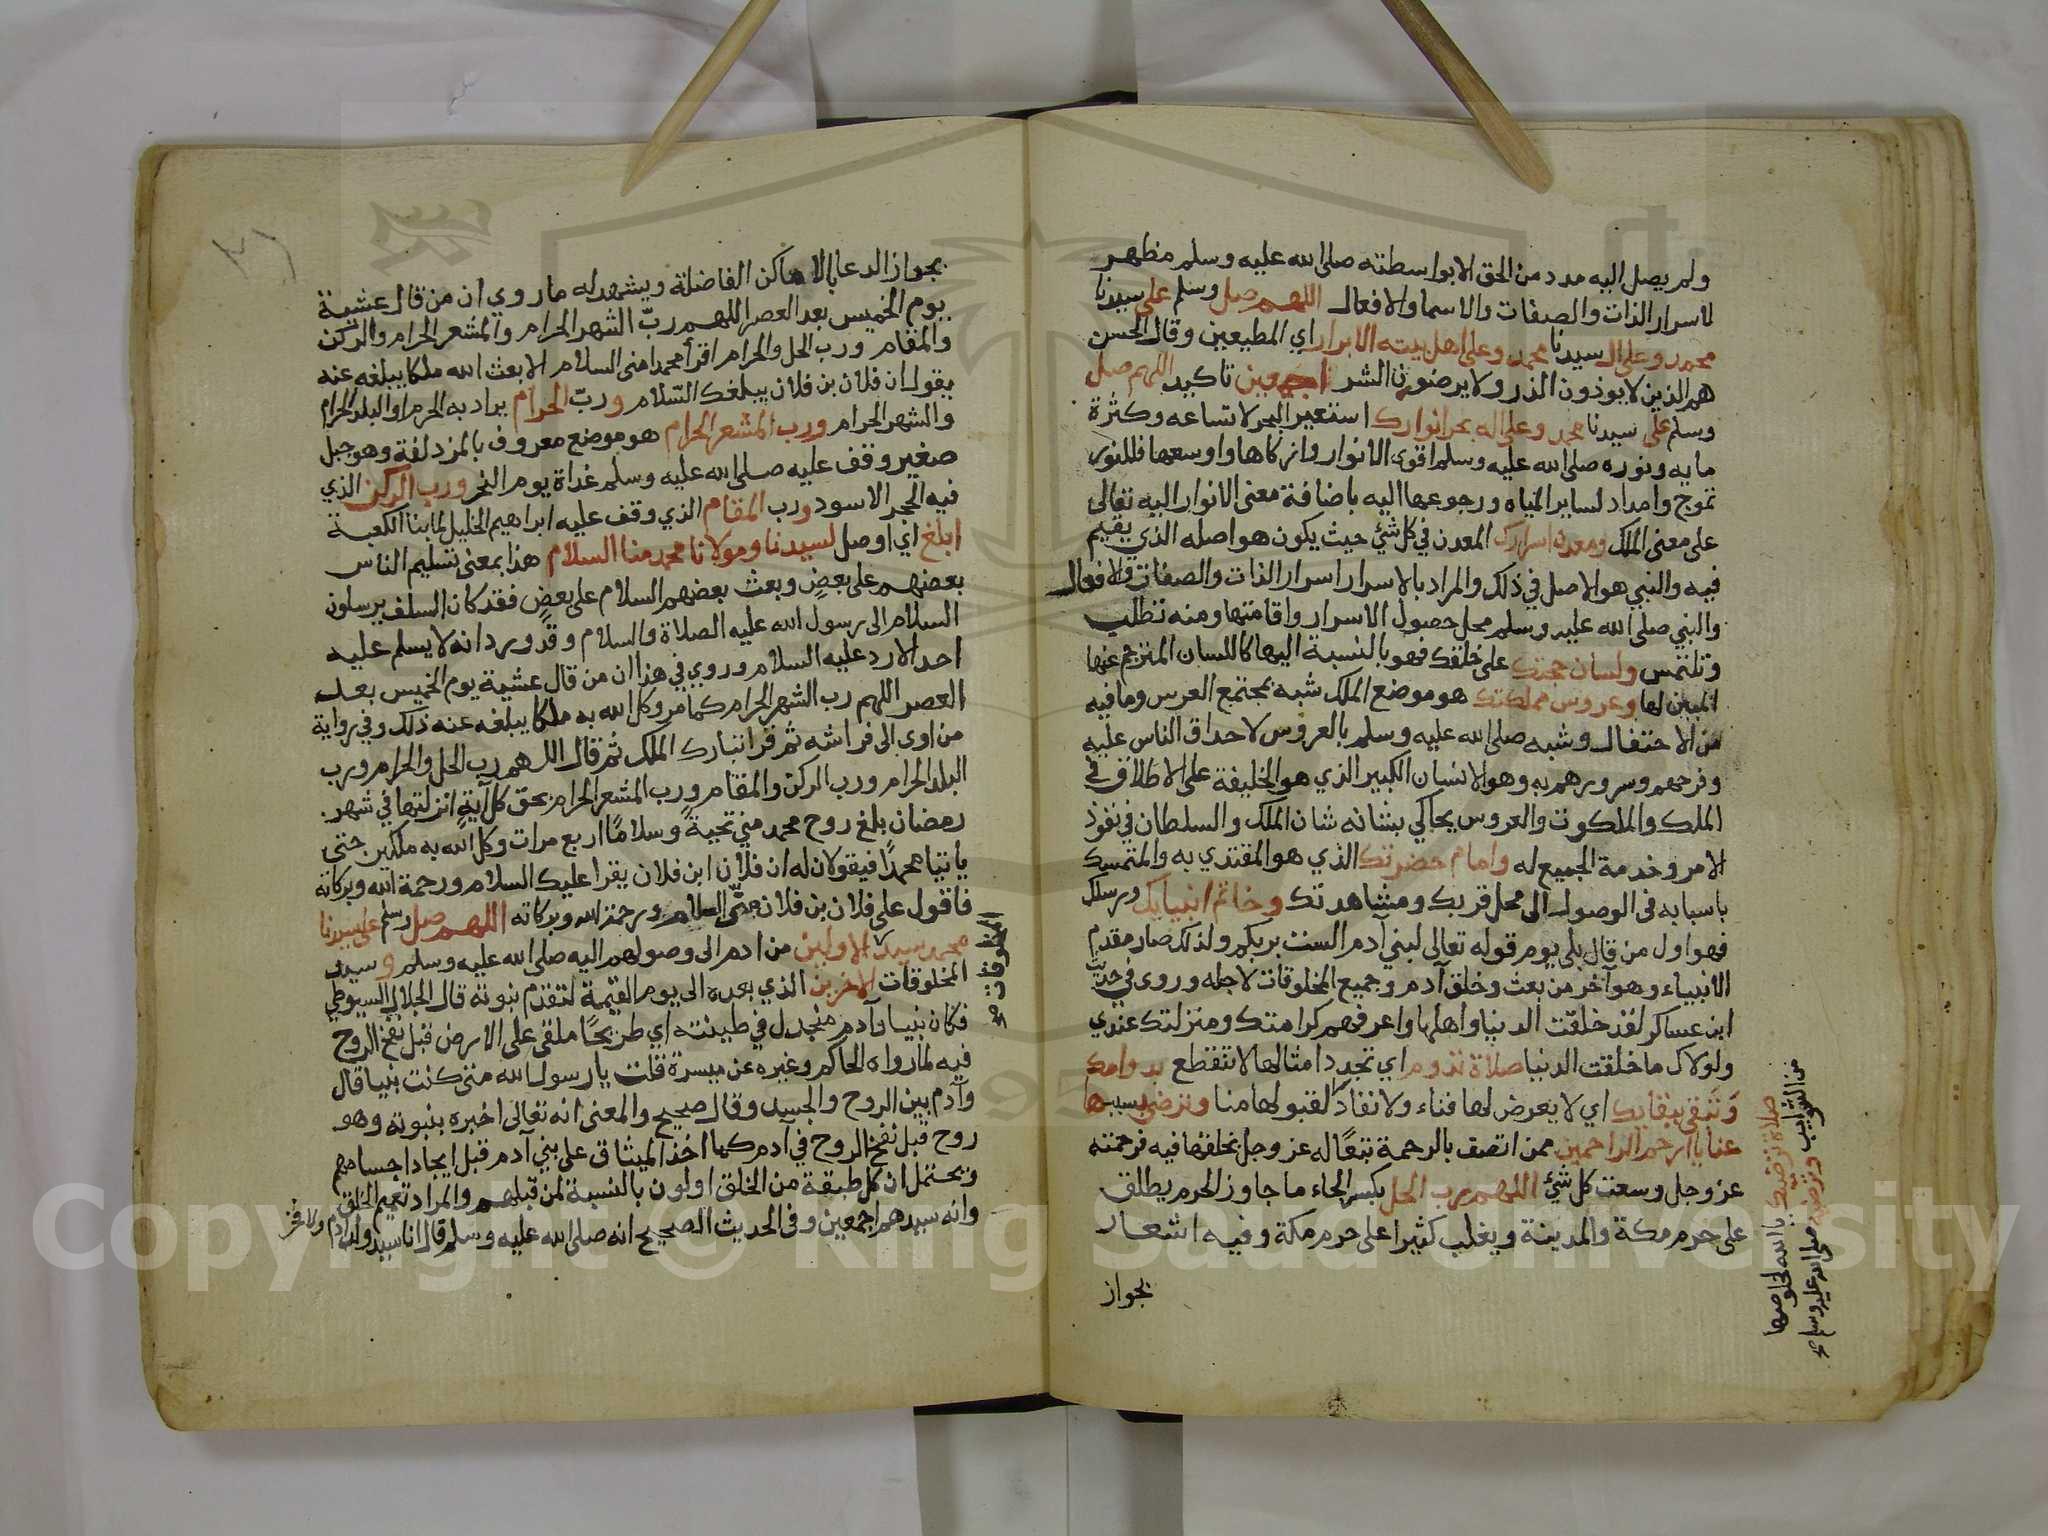 ولم يصل اليه مدد من الحق الا بواسطته صلى الله عليه وسلم مظهر
لاسرار الذات والصفات والاسما والافعال اللهم صل وسلم على سيدنا
محمد وعلى ال سيدنا محمد وعلى اهل بيته الابرار اي المطيعين وقال الحسن
هم الذين لا يوذون الذر ولا يرضون الشر اجمعين تاكيد اللهم صل
وسلم على سيدنا محمد وعلى اله بحر انوارك استعير البحر لاتساعه وكثرة
مايه ونوره صلى الله عليه وسلم اقوى الانوار وازكاها واوسعها فللنور
تموج وامداد لساير المياه ورجوعها اليه باضافة معنى الانوار اليه تعالى
على معنى الملك ومعدن اسرارك المعدن في كل شئ حيث يكون هو اصله الذي يقيم
فيه والنبي هو الاصل في ذلك والمراد بالاسرار اسرار الذات والصفات والافعال
والنبي صلى الله عليه وسلم محل حصول الاسرار واقامتها ومنه تطلب
وتلتمس ولسان حجتك على خلقك فهو بالنسبة اليها كاللسان المترجم عنها
المبين لها وعروس مملكتك هو موضع الملك شبه بمجتمع العرس وما فيه
من الاحتفال وشبه صلى الله عليه وسلم بالعروس لاحداق الناس عليه
وفرحهم وسرورهم به وهو الانسان الكبير الذي هو الخليفة على الاطلاق في
الملك والملكوت والعروس يحاكي بشانه شان الملك والسلطان في نفوذ
الامر وخدمة الجميع له وامام حضرتك الذي هو المقتدي به والمتمسك
باسبابه في الوصول الى محل قربك ومشاهدتك وخاتم انبيايك ورسلك
فهو اول من قال بلى يوم قوله تعالى لبني آدم الست بربكم ولذلك صار مقدم
الانبياء وهو آخر من بعث وخلق آدم وجميع المخلوقات لاجله وروى في حديث
ابن عساكر لقد خلقت الدنيا واهلها واعرفهم كرامتك ومنزلتك عندي
ولولاك ما خلقت الدنيا صلاة تدوم اي تجدد امثالها لا تنقطع بدوامك
وتبقى ببقايك اي لا يعرض لها فناء ولا نفاد لقبولها منا وترضى بسببها
عنا يا ارحم الراحمين ممن اتصف بالرحمة تبعا له عز وجل بخلقها فيه فرحمته
عز وجل وسعت كل شئ اللهم رب الحل بكسر الحاء ما جاوز الحرم يطلق
على حرم مكة والمدينة ويغلب كثيرا على حرم مكة وفيه اشعار
بجواز
صلاة ترضيك يا الله لخلوصها
من الشوايب وترضيه صلى الله عليه وسلم صح
بجواز الدعا بالاماكن الفاضلة ويشهد له ما روي ان من قال عشية
يوم الخميس بعد العصر اللهم ربّ الشهر الحرام والمشعر الحرام والركن
والمقام ورب الحل والحرام اقرا محمدا مني السلام الا بعث الله ملكا يبلغه عنه
يقول ان فلان بن فلان يبلغك السّلام وربّ الحرام يراد به الحرم او البلد الحرام
والشهر الحرام ورب المشعر الحرام هو موضع معروف بالمزدلفة وهو جبل
صغير وقف عليه صلى الله عليه وسلم غداة يوم النحر ورب الركن الذي
فيه الحجر الاسود ورب المقام الذي وقف عليه ابراهيم الخليل لما بنا الكعبة
ابلغ اي اوصل لسيدنا ومولانا محمد منا السلام هذا بمعنى تسليم الناس
بعضهم على بعضٍ وبعث بعضهم السلام على بعضٍ فقد كان السلف يرسلون
السلام الى رسول الله عليه الصلاة والسلام وقد ورد انه لا يسلم عليه
احد الا رد عليه السلام وروي في هذا ان من قال عشية يوم الخميس بعد
العصر اللهم رب الشهر الحرام كما مر وكل الله به ملكا يبلغه عنه ذلك وفي رواية
من اوى الى فراشه ثم قرا تبارك الملك ثم قال اللهم رب الحل والحرام ورب
البلد الحرام ورب الركن والمقام ورب المشعر الحرام بحق كل آية انزلتها في شهر
رمضان بلغ روح محمد مني تحيةً وسلامًا اربع مرات وكل الله به ملكين حتى
ياتيا محمدًا فيقولان له ان فلان ابن فلان يقرا عليك السلام ورحمة الله وبركاته
فاقول على فلان بن فلان منّي السلام ورحمة الله وبركاته اللهم صل وسلم على سيدنا
محمد سيد الاولين من ادم الى وصولهم اليه صلى الله عليه وسلم وسيد
المخلوقات الاخرين الذي بعده الى يوم القيمة لتقدم نبوته قال الجلال السيوطي
فكان نبيا وآدم منجدل في طينته اي طريحًا ملقى على الارض قبل نفخ الروح
فيه لما رواه الحاكم وغيره عن ميسرة قلت يا رسول الله متى كنت نبيا قال
وآدم بين الروح والجسد وقال صحيح والمعنى انه تعالى اخبره بنبوته وهو
روح قبل نفخ الروح في آدم كما اخذ الميثاق على بني آدم قبل ايجاد اجسامهم
ويحتمل ان كل طبقة من الخلق اولون بالنسبة لمن قبلهم والمراد تعميم الخلق
وانه سيدهم اجمعين وفي الحديث الصحيح انه صلى الله عليه وسلم قال انا سيد ولد ادم ولا فخر
Copyright © King Saud University